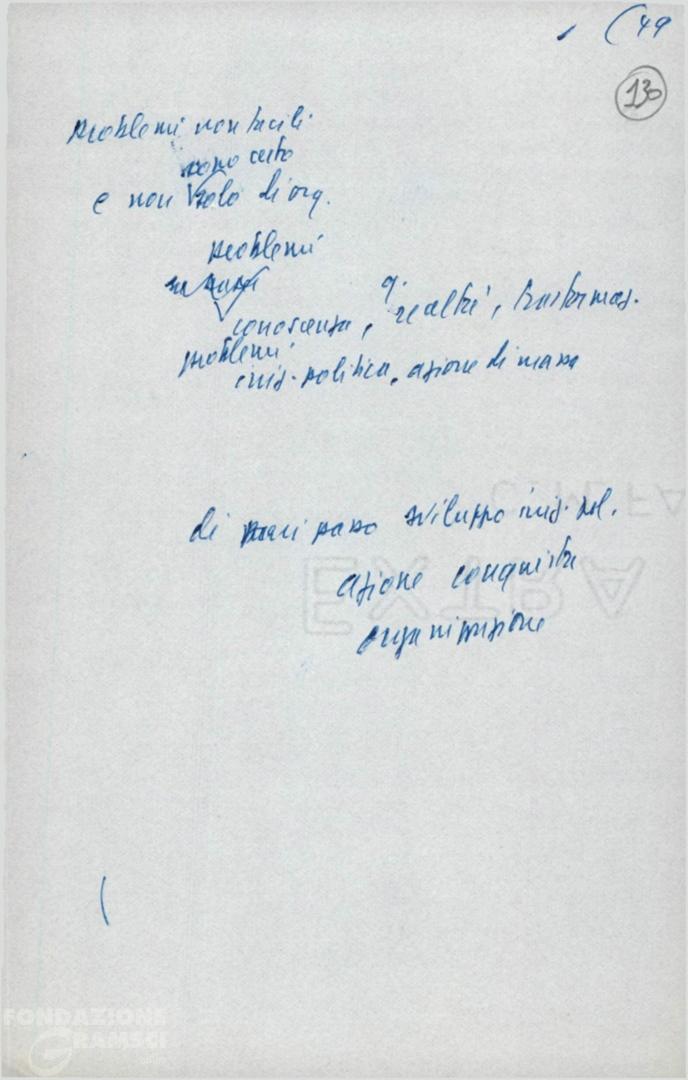 (49
130
problemi non facili
sono certo
e non solo di org.
problemi
conoscenza, q. realtà, trasformaz.
problemi
iniz. politica, azione di massa
di pari passo sviluppo iniz. pol.
azione conquista
organizzazione
EXTRA
FONDAZIONE
GRAMSCI